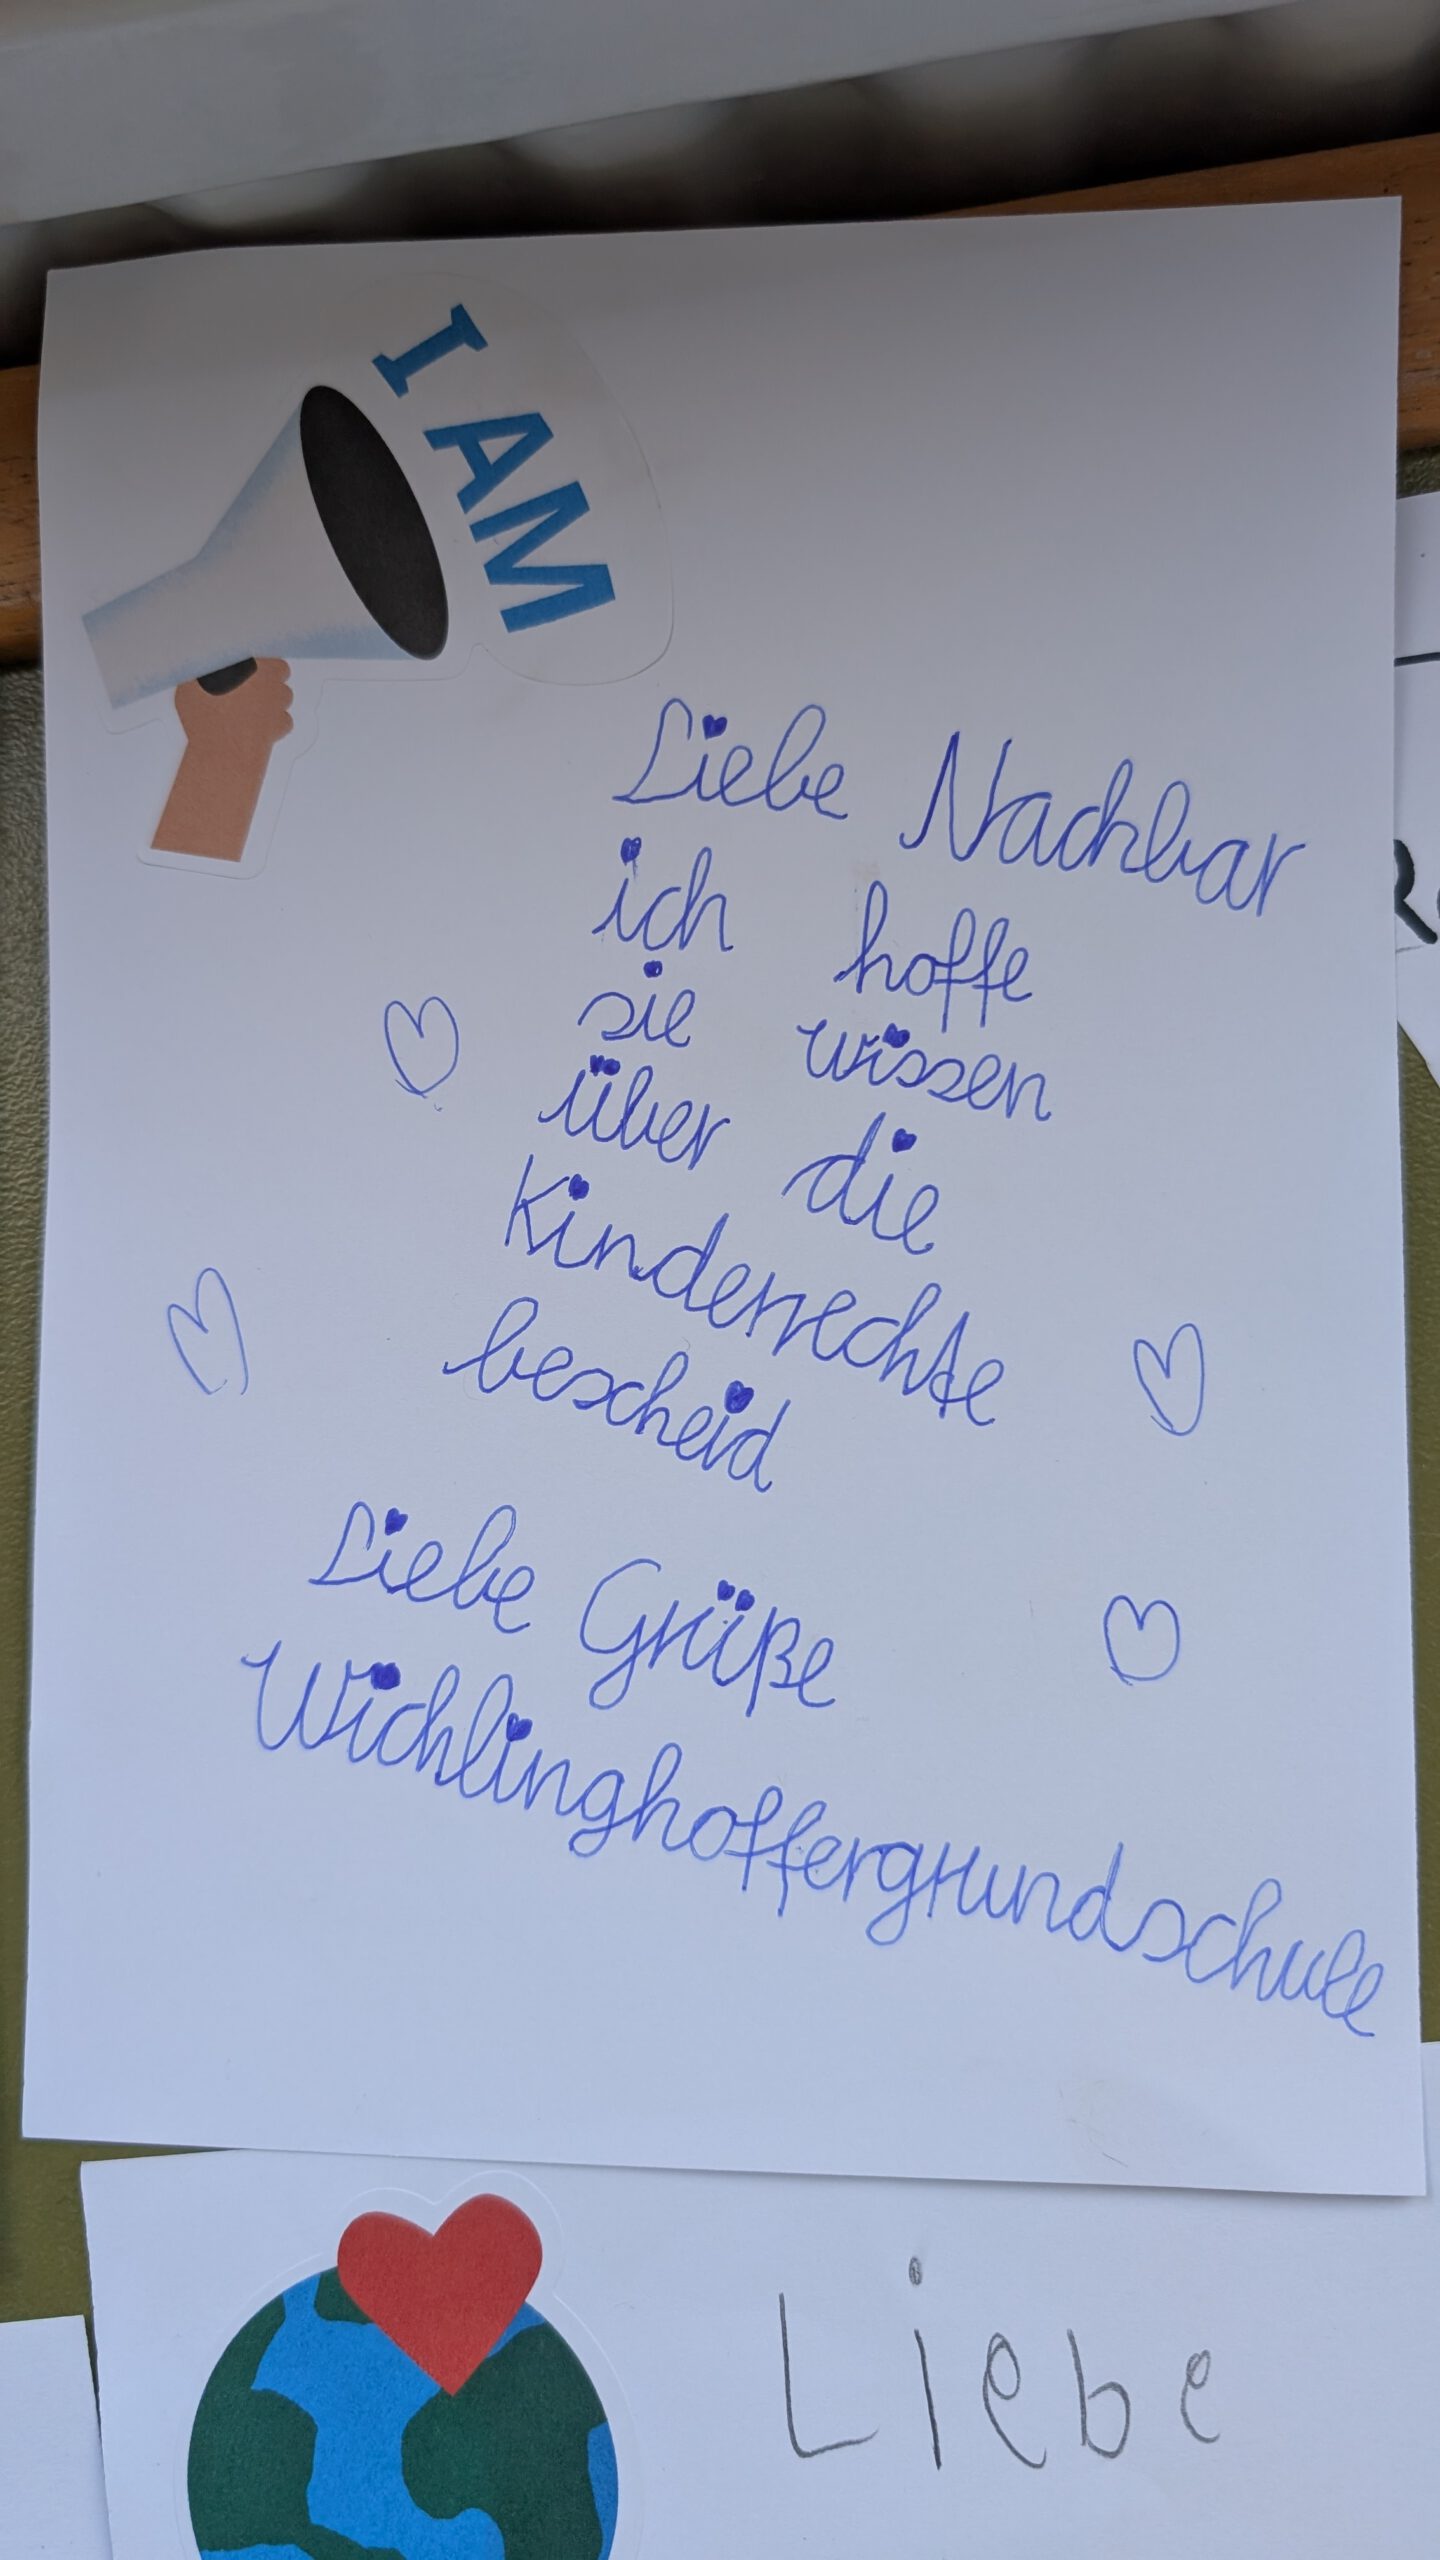 I AM
Liebe Nachbar
ich hoffe
sie wissen
über die
Kinderrechte
bescheid
Liebe Grüße
Wichlinghoffergrundschule
Liebe